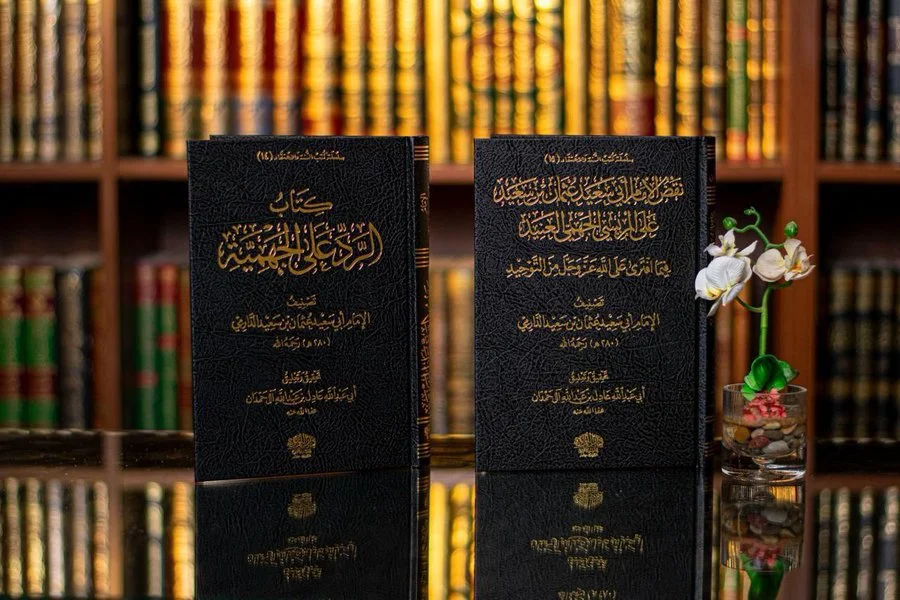 سلسلة كتب السنة والاعتقاد (١٤)
كِتَابُ
الرَّدِّ عَلَى الجَهْمِيَّةِ
تصنيف
الإمام أبي سعيد عثمان بن سعيد الدَّارمي
(٢٨٠هـ) رحمه الله
تحقيق وتعليق
أبي عبد الله عادل بن عبد الله آل حمدان
عفا الله عنه
سلسلة كتب السنة والاعتقاد (١٥)
نقض الإمام أبي سعيد عثمان بن سعيد
على المريسي الجهمي العنيد
فيما افترى على الله عز وجل من التوحيد
تصنيف
الإمام أبي سعيد عثمان بن سعيد الدَّارمي
(٢٨٠هـ) رحمه الله
تحقيق وتعليق
أبي عبد الله عادل بن عبد الله آل حمدان
عفا الله عنه